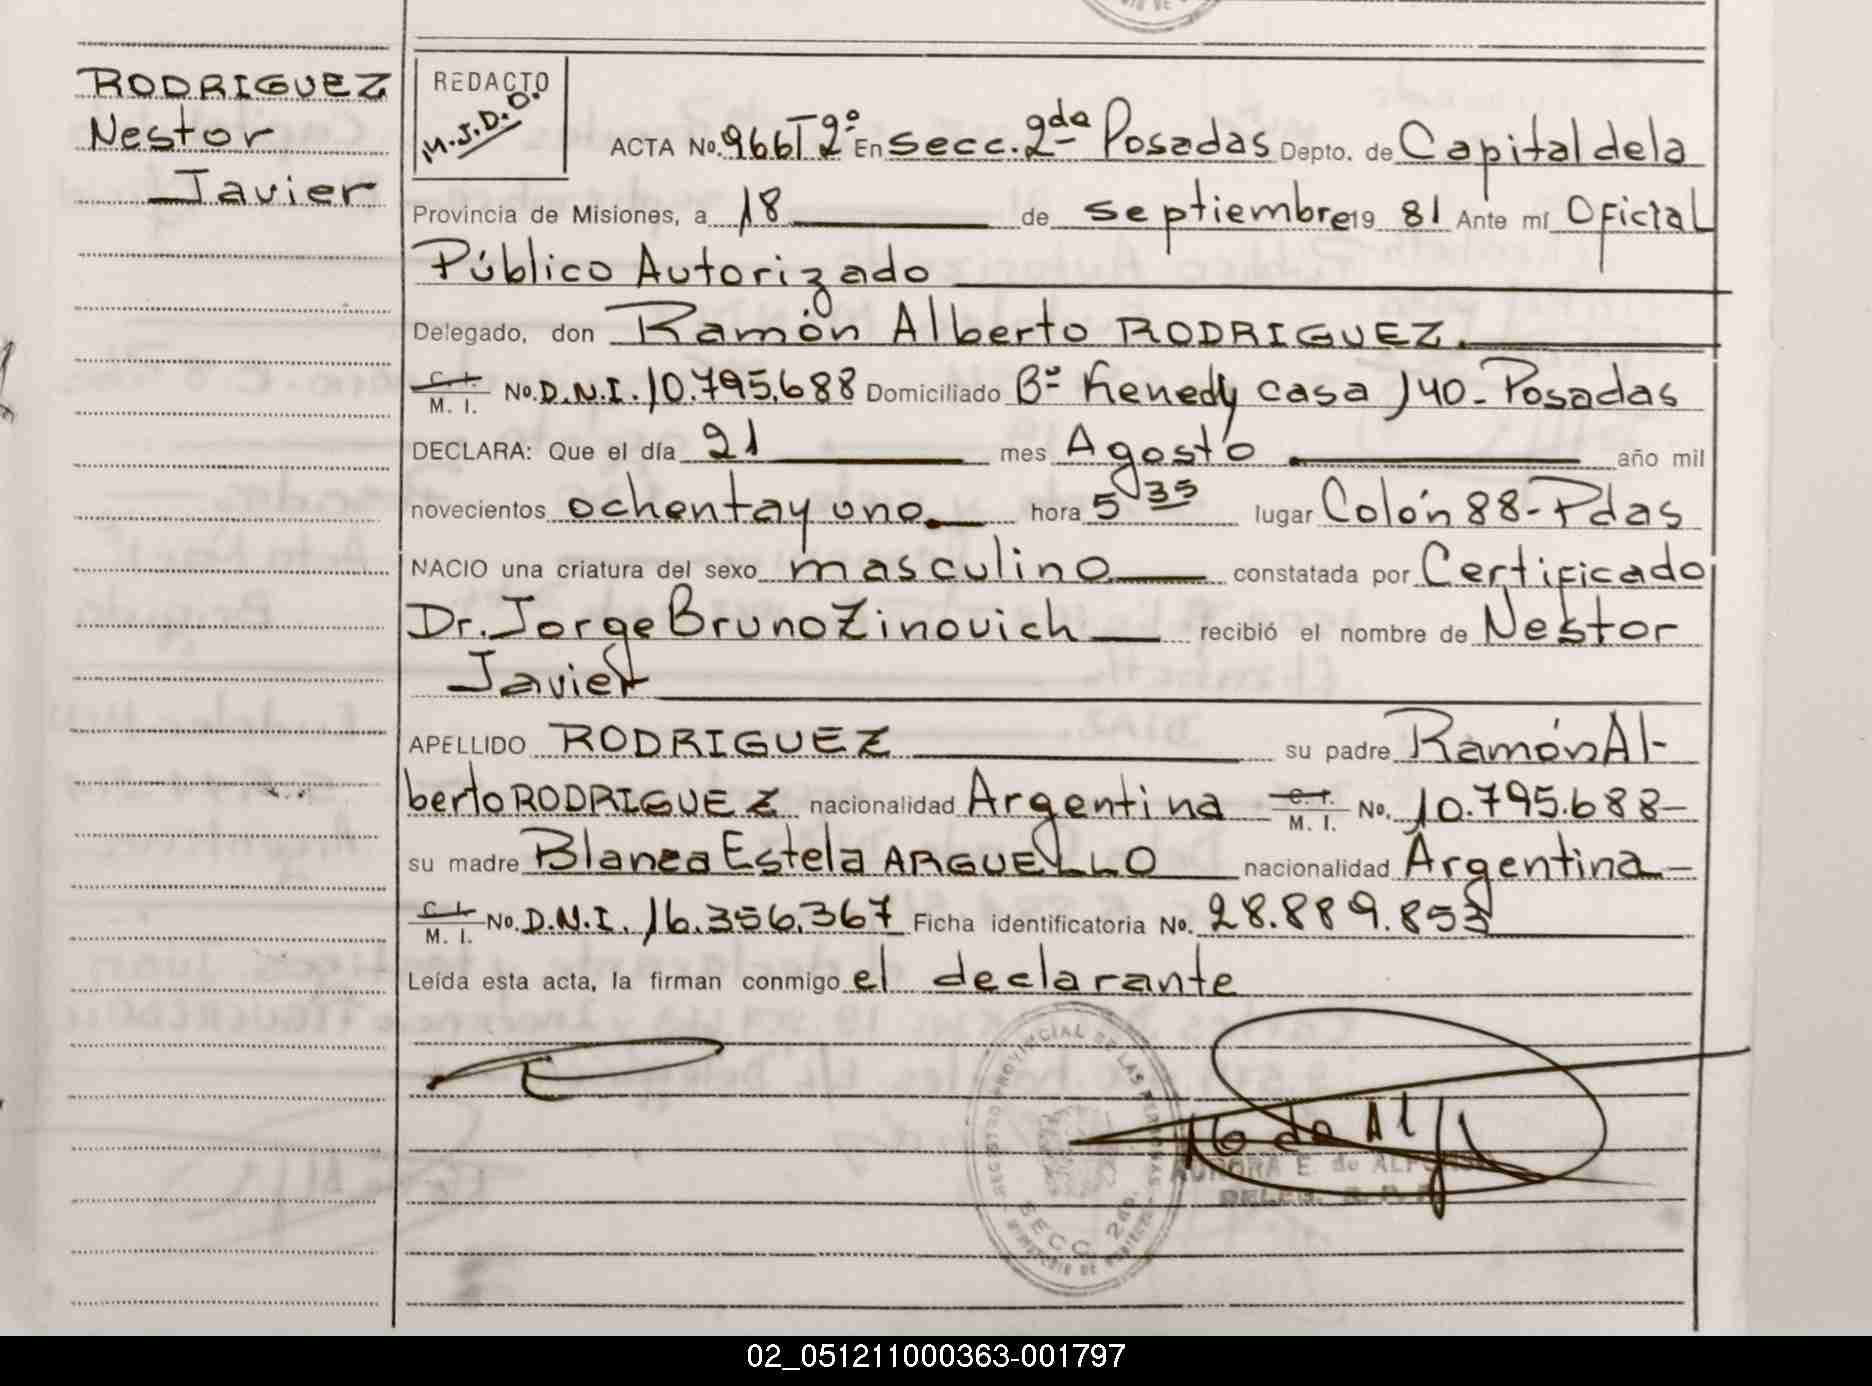 RODRIGUEZ
Nestor
Javier
REDACTO
M.J.D.O.
ACTA No. 966 T 2º En secc. 2da Posadas Depto. de Capital de la
Provincia de Misiones, a 18 de septiembre 19 81 Ante mí Oficial
Público Autorizado
Delegado, don Ramón Alberto RODRIGUEZ.
C. I. M. I. No. D.N.I. 10.795.688 Domiciliado Bº Kenedy casa 140 - Posadas
DECLARA: Que el día 21 mes Agosto año mil
novecientos ochenta y uno. hora 5 35 lugar Colón 88 - Pdas
NACIO una criatura del sexo masculino constatada por Certificado
Dr. Jorge Bruno Zinovich recibió el nombre de Nestor
Javier
APELLIDO RODRIGUEZ su padre Ramón Al-
berto RODRIGUEZ nacionalidad Argentina C. I. M. I. No. 10.795.688 -
su madre Blanca Estela ARGUELLO nacionalidad Argentina -
C. I. M. I. No. D.N.I. 16.356.367 Ficha identificatoria No. 28.889.853
Leída esta acta, la firman conmigo el declarante
REGISTRO PROVINCIAL DE LAS PERSONAS
SECC. 2da.
AURORA E. de ALFONSO
DELEG. R. P. P.
02_051211000363-001797